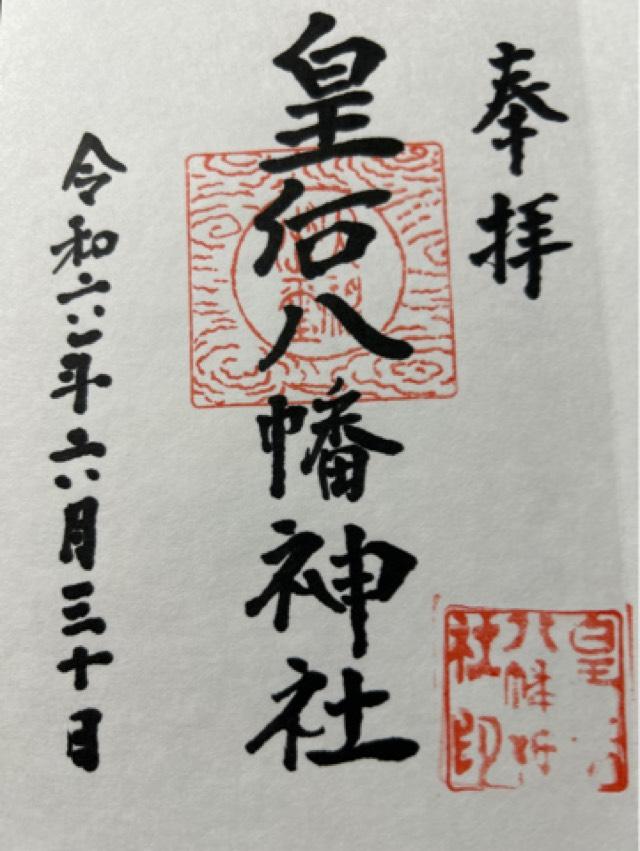 奉拝
皇后八幡神社
令和六年六月三十日
皇
八幡神
社印